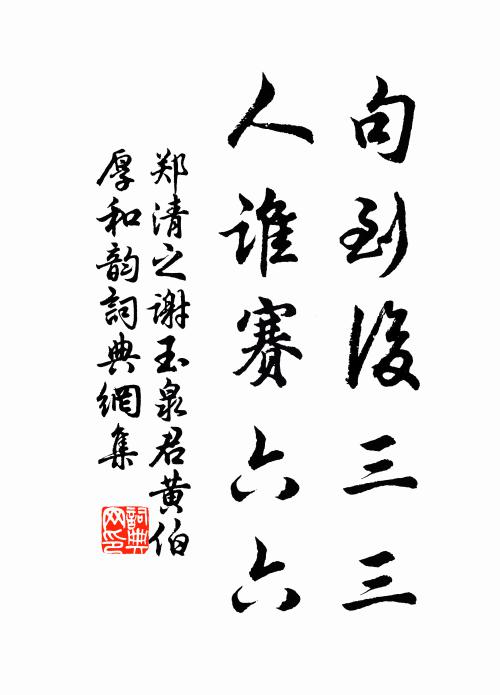 句到後三三
人谁赛六六
郑清之谢玉泉君黄伯
厚和韵詞典網集
詞典网印